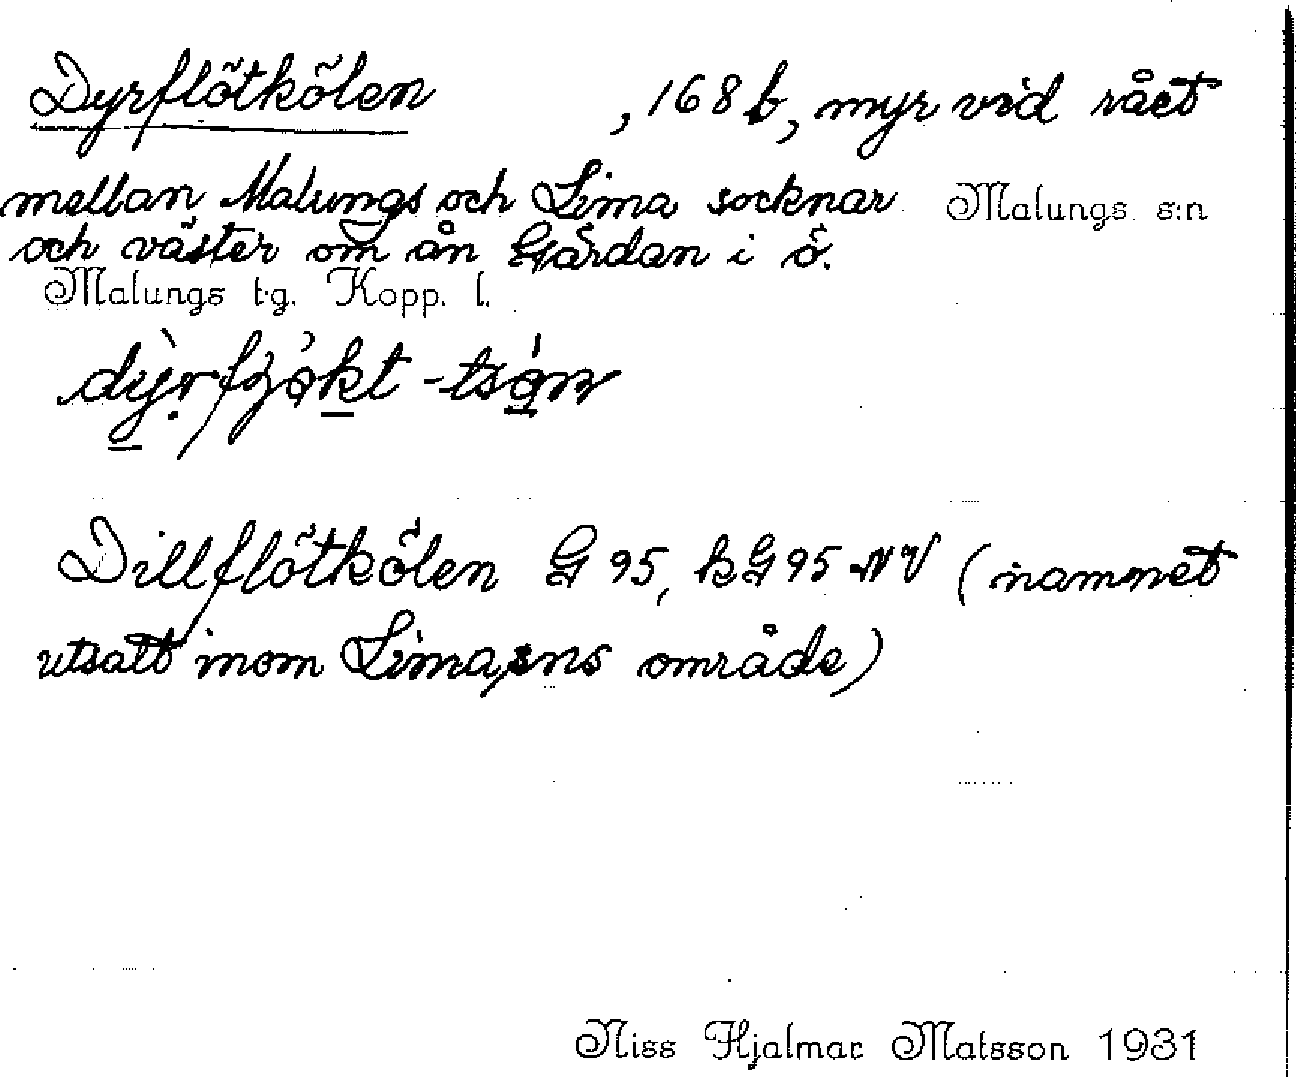 Dyrflötkölen , 168 b, myr vid rået
mellan Malungs och Lima socknar Malungs s:n
och väster om ån Gärdan i ö.
Malungs t.g. Kopp. l.
Dillflötkölen G 95, kG 95 NV (namnet
utsatt inom Lima sns område)
Niss Hjalmar Matsson 1931